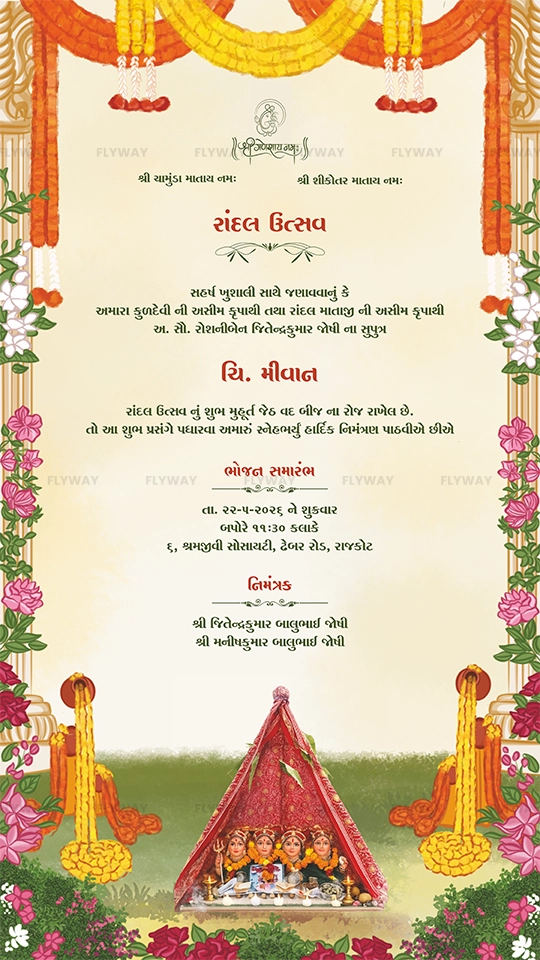 શ્રી ગણેશાય નમઃ
FLYWAY FLYWAY FLYWAY FLYWAY FLYWAY
શ્રી ચામુંડા માતાય નમઃ શ્રી શીકોતર માતાય નમઃ
રાંદલ ઉત્સવ
સહર્ષ ખુશાલી સાથે જણાવવાનું કે
અમારા કુળદેવી ની અસીમ કૃપાથી તથા રાંદલ માતાજી ની અસીમ કૃપાથી
અ. સૌ. રોશનીબેન જિતેન્દ્રકુમાર જોષી ના સુપુત્ર
ચિ. મીવાન
રાંદલ ઉત્સવ નું શુભ મુહૂર્ત જેઠ વદ બીજ ના રોજ રાખેલ છે.
તો આ શુભ પ્રસંગે પધારવા અમારું સ્નેહભર્યુ હાર્દિક નિમંત્રણ પાઠવીએ છીએ
ભોજન સમારંભ
FLYWAY FLYWAY FLYWAY FLYWAY FLYWAY
તા. ૨૨-૫-૨૦૨૬ ને શુક્રવાર
બપોરે ૧૧:૩૦ કલાકે
૬, શ્રમજીવી સોસાયટી, ઢેબર રોડ, રાજકોટ
નિમંત્રક
શ્રી જિતેન્દ્રકુમાર બાલુભાઈ જોષી
શ્રી મનીષકુમાર બાલુભાઈ જોષી
FLYWAY FLYWAY FLYWAY FLYWAY FLYWAY